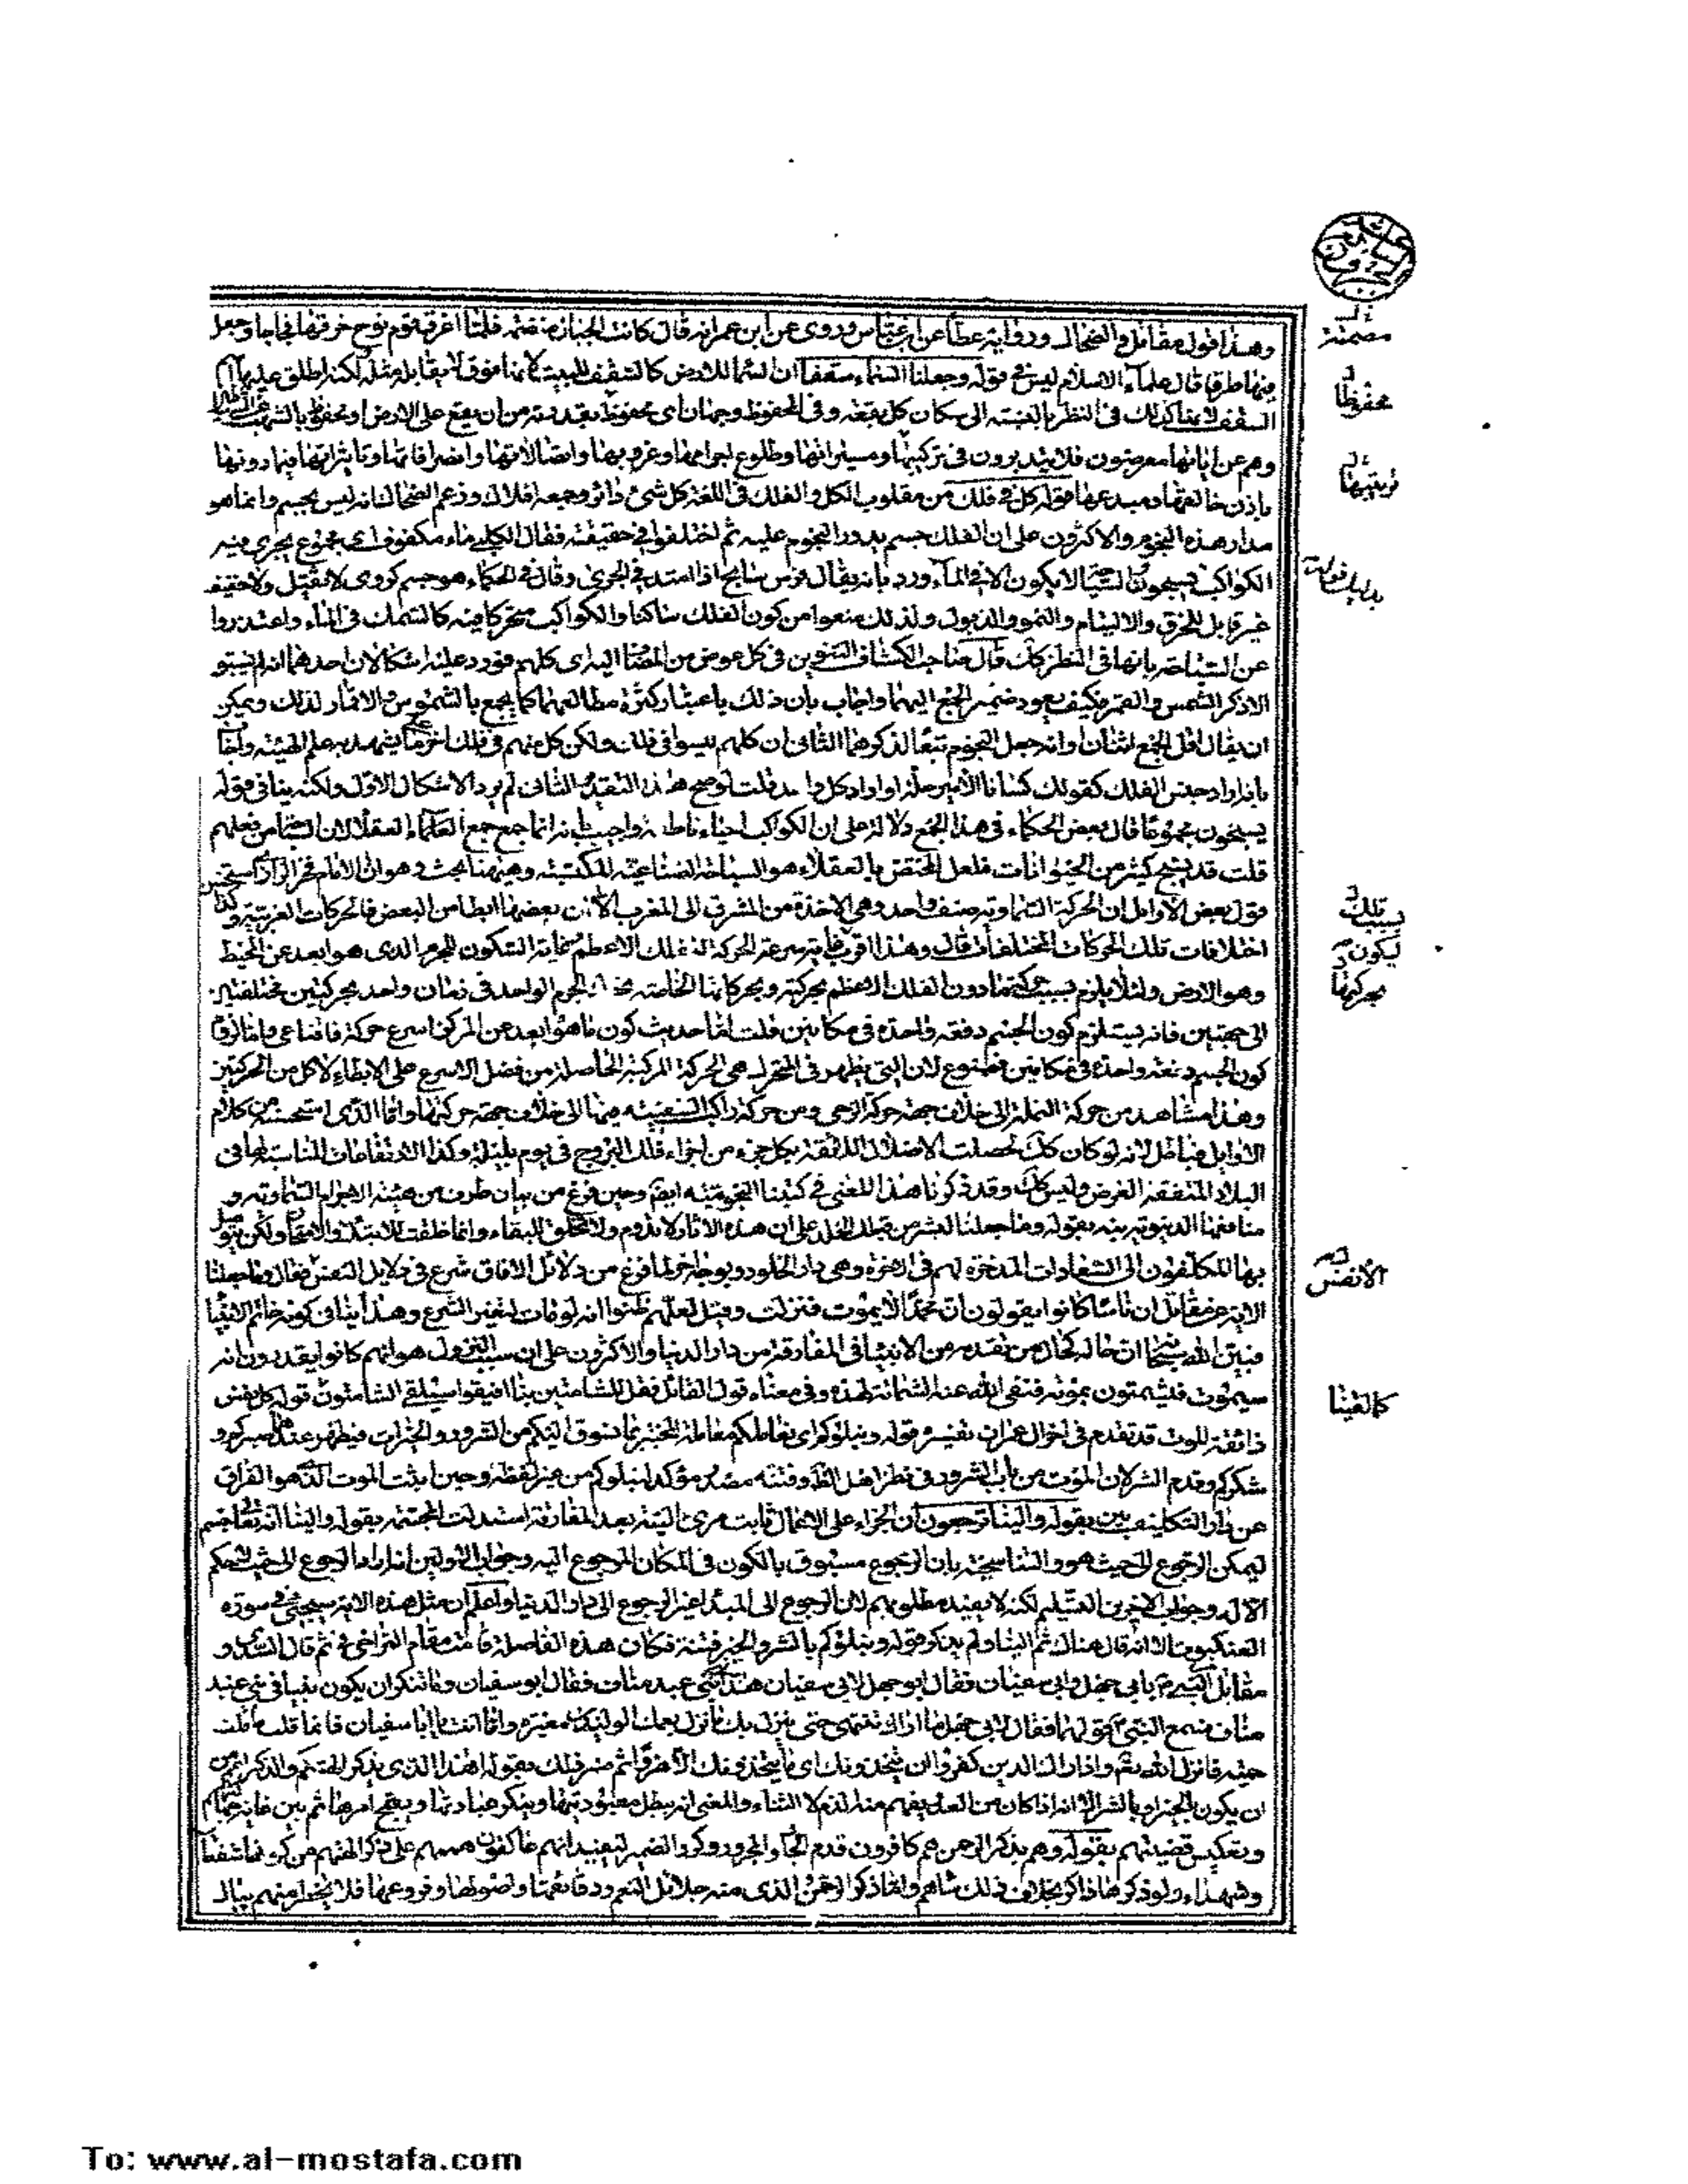 وهذا قول مقاتل والضحاك ورواية عطا عن ابن عباس وروى عن ابن عمر انه قال كانت الجبال منضمة فلما اغرق قوم نوح فرقها فجاجا وجعل
فيها طرقا قال علماء الاسلام ليس في قوله وجعلنا السماء سقفا ان السماء للارض كالسقف للبيت لانها فوق لا يقابله مثله لكنه اطلق عليها
السقف لانها كذلك في النظر بالنسبة الى سكان كل بقعة وفي المحفوظ وجهان اى محفوظ بقدرته من ان يقع على الارض او محفوظ بالشهب
وهم عن اياتها معرضون فلا يتدبرون في تركيبها ومسيراتها وطلوع اجرامها وغروبها واتصالاتها وانصرافاتها وتاثيراتها فيما دونها
باذن خالقها ومبدعها قوله كل في فلك من مقلوب الكل والفلك في اللغة كل شئ دائر وجمعه افلاك وزعم الضحاك انه ليس بجسم وانما هو
مدار هذه النجوم والاكثرون على ان الفلك جسم يدور النجوم عليه ثم اختلفوا في حقيقته فقال الكلبي ماء مكفوف اى مجموع يجري فيه
الكواكب يسبحون السباحة لا يكون الا في الماء ورد بانه يقال فرس سابح اذا امتد في الجرى وقال في الحكماء هو جسم كروى لا ثقيل ولا خفيف
غير قابل للخرق والالتيام والنمو والذبول ولذلك منعوا من كون الفلك ساكنا والكواكب متحركا فيه كالسمك في الماء واعتذروا
عن السباحة بانها في النظر كك قال صاحب الكشاف التنوين في كل عوض من المضاف اليه اى كلهم فورد عليه اشكالان احدهما انه لم يسبق
الا ذكر الشمس والقمر فكيف يعود ضمير الجمع اليهما واجاب بان ذلك باعتبار كثرة مطالعهما كما يجمع بالشموس والاقمار لذلك ويمكن
ان يقال اقل الجمع اثنان او انه جعل النجوم تبعا لذكرهما الثاني ان كلهم ليسوا في فلك ولكن كل منهم في فلك اخر كما يشهد به علم الهيئة واجاب
بانه اراد جنس الفلك كقولك كسانا الامير حلة او اراد كل واحد قلت لو صح هذا التقدير الثاني لم يرد الاشكال الاول ولكنه ينافي قوله
يسبحون مجموعا قال بعض الحكماء في هذا الجمع دلالة على ان الكواكب احياء ناطقة واجيب بانه انما جمع جمع العقلاء لان السباحة من فعلهم
قلت قد يسبح كثير من الحيوانات فلعل المختص بالعقلاء هو السباحة الصناعية المكتسبة وههنا بحث وهو ان الامام فخر الرازى استحسن
قول بعض الاوايل ان الحركة السماوية صنف واحد وهي الاخذة من المشرق الى المغرب الا ان بعضها ابطا من البعض فالحركات الغربية وكذا
اختلافات تلك الحركات المختلفات قال وهذا اقرب غاية سرعة الحركة للفلك الاعظم غاية السكون للجرم الذى هو ابعد عن المحيط
وهو الارض ولئلا يلزم بسبب حركة ما دون الفلك الاعظم بحركته وبحركاتها الخاصة تحرك الجرم الواحد في زمان واحد بحركتين مختلفتين
الى جهتين فانه يستلزم كون الجسم دفعة واحدة في مكانين قلت اما حديث كون ما هو ابعد عن المركز اسرع حركة فاقناعي واما لزوم
كون الجسم دفعة واحدة في مكانين فممنوع لان التي يظهر في المتحرك هي الحركة المركبة الحاصلة من فضل الاسرع على الابطاء لا كل من الحركتين
وهذا مشاهد من حركة النملة الى خلاف جهة حركة الرحى ومن حركة راكب السفينة فيها الى خلاف جهة حركتها واما الذى استحسنه من كلام
الاوايل فباطل لانه لو كان كك لحصلت الاظلال اللائقة بكل جزء من اجزاء فلك البروج في يوم بليلة وكذا الارتفاعات المناسبة لها في
البلاد المتفقة العرض وليس كك وقد ذكرنا هذا المعنى في كتبنا النجومية ايضا وحين فرغ من بيان طرف من هيئة الاجرام السماوية و
منافعها الدنيوية نبه بقوله وما جعلنا لبشر من قبلك الخلد على ان هذه الاثار لا تدوم ولا تخلق للبقاء وانما خلقت للابتلاء والامتحان ولكن يتوصل
بها المكلفون الى السعادات المدخرة لهم في الاخرة وهي دار الخلود وبوجه اخر لما فرغ من دلائل الافاق شرع في دلايل النفس فقال وما جعلنا
الاية عن مقاتل ان ناسا كانوا يقولون ان محمدا لا يموت فنزلت وقيل لعلهم ظنوا انه لو مات لتغير الشرع وهذا ينافي كونه خاتم الانبياء
فبين الله سبحانه ان حاله كحال من تقدمه من الانبياء في المفارقة من دار الدنيا والاكثرون على ان سبب النزول هو انهم كانوا يقدرون انه
سيموت فيشمتون بموته فنفى الله عنه الشماتة لهذه وفي معناه قول القائل فقل للشامتين بنا افيقوا سيلقى الشامتون قوله كل نفس
ذائقة الموت قد تقدم في اخر ال عمران تفسيره قوله ونبلوكم اى نعاملكم معاملة المختبر بما نسوق اليكم من الشرور والخيرات فيظهر عندها صبركم و
شكركم وقدم الشر لان الموت من باب الشرور في نظر اهل الظاهر وفتنة مصدر مؤكد لنبلوكم من غير لفظه وحين اثبت الموت الذى هو الفراق
عن دار التكليف بين بقوله والينا ترجعون ان الجزاء على الاعمال ثابت مرئ البتة بعد المفارقة استدلت المجسمة بقوله والينا انه تعالى جسم
ليمكن الرجوع الى حيث هو والتناسخية بان الرجوع مسبوق بالكون في المكان المرجوع اليه وجواب الاولين انه اراد الرجوع الى حيث لا حكم
الا له وجواب الاخرين التسليم لكنه لا يفيد مطلوبهم لان الرجوع الى المبدا غير الرجوع الى دار الدنيا واعلم ان مثل هذه الاية سيجئ في سورة
العنكبوت الا انه قال هناك ثم الينا ولم يذكر قوله ونبلوكم بالشر والخير فتنة فكان هذه الفاصلة قامت مقام التراخى في ثم قال السدى و
مقاتل النبي م بابي جهل وابي سفيان فقال ابو جهل لابي سفيان هذا نبي عبد مناف فقال ابو سفيان وما تنكر ان يكون نبيا في بني عبد
مناف فسمع النبي م قولهما فقال لابي جهل ما اراك تنتهى حتى ينزل بك ما نزل بعمك الوليد بن المغيرة واما انت يا ابا سفيان فانما قلت ما قلت
حمية فانزل الله تعم واذا راك الذين كفروا ان يتخذونك اى ما يتخذونك الا هزوا ثم فسر ذلك بقوله اهذا الذى يذكر الهتكم والذكر اعم من
ان يكون بالخير او بالشر الا انه اذا كان من العدو يفهم منه الذم لا الثناء والمعنى انه يبطل معبوديتها وينكر عبادتها ويقبح امرها ثم بين غاية جهالتهم
وتعكيس قضيتهم بقوله وهم بذكر الرحمن هم كافرون قدم الجار والمجرور وكرر الضمير ليفيد انهم عاكفون هممهم على ذكر الهتهم من كونها شفعاء
وشهداء ولو ذكرها ذاكر بخلاف ذلك ساءهم واما ذكر الرحمن الذى منه جلائل النعم ودقائقها واصولها وفروعها فلا يخطر منهم ببال
مصمتة
محفوظا
تربيتها
بسبب تلك
ليكون
بحركتها
الانفس
كما لقينا
To: www.al-mostafa.com